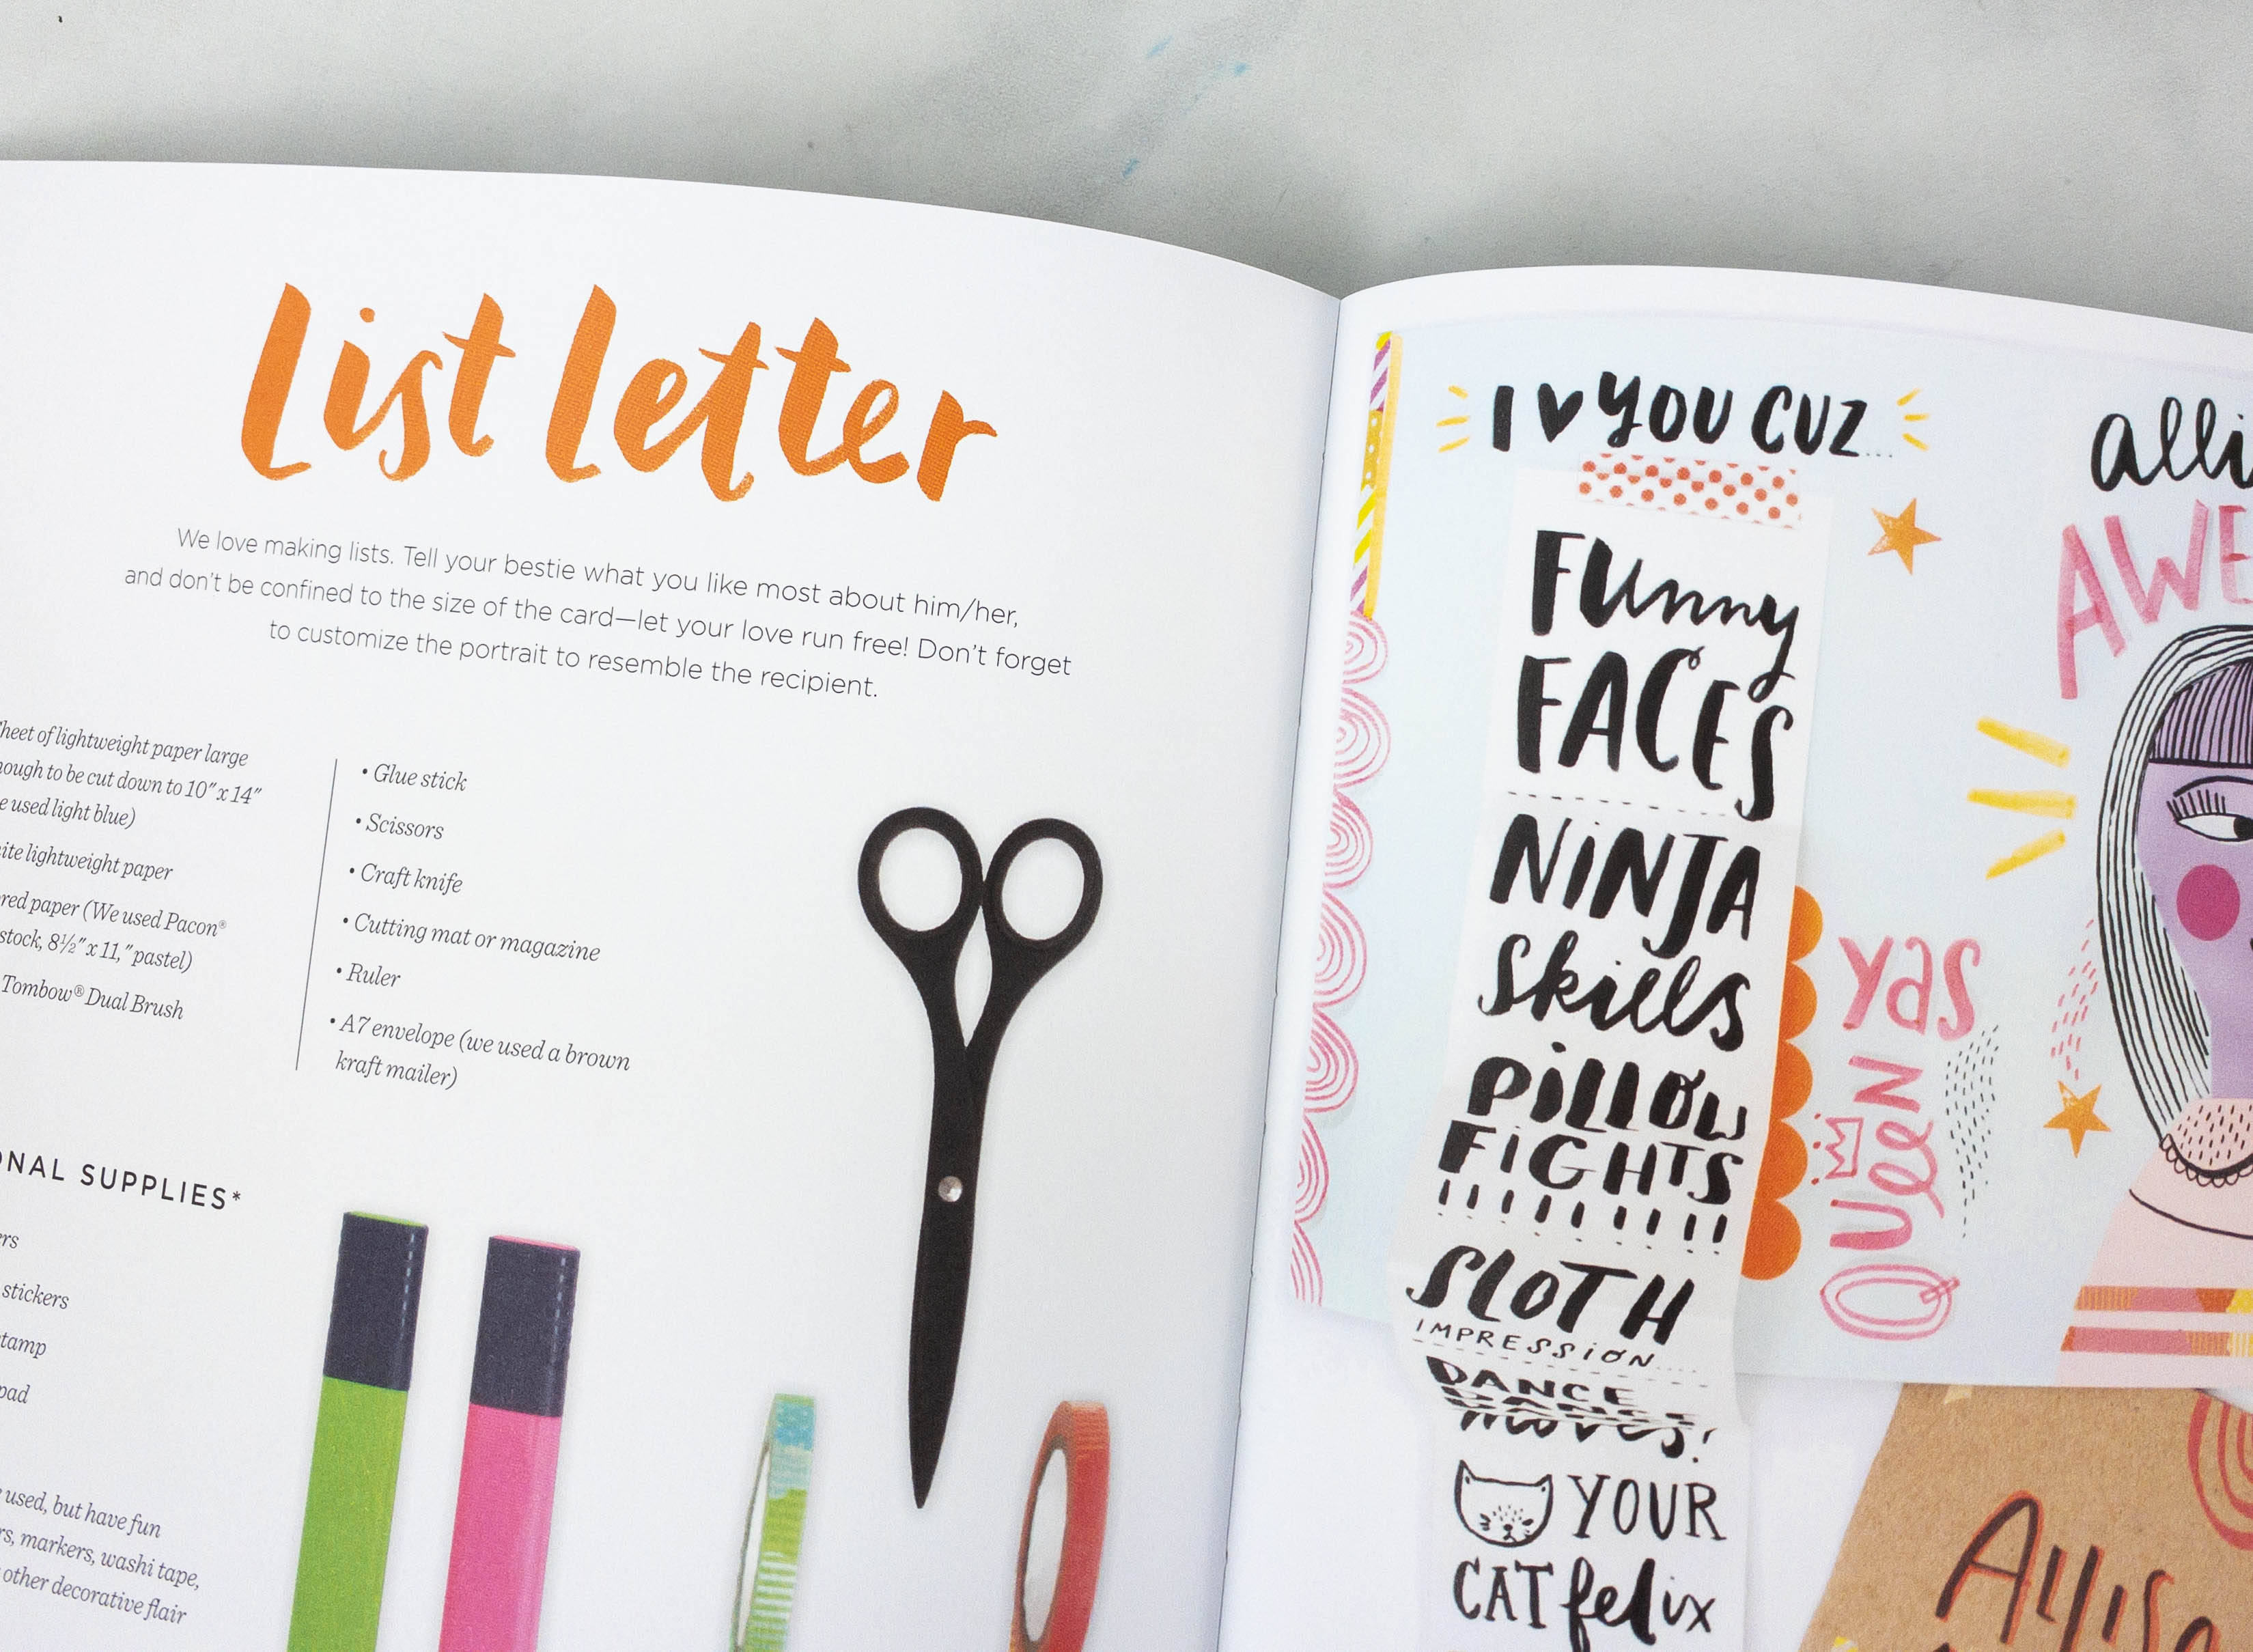 List letter
We love making lists. Tell your bestie what you like most about him/her,
and don't be confined to the size of the card—let your love run free! Don't forget
to customize the portrait to resemble the recipient.
of lightweight paper large
to be cut down to 10" x 14"
used light blue)
lightweight paper
paper (We used Pacon®
stock, 8½" x 11," pastel)
Tombow® Dual Brush
• Glue stick
• Scissors
• Craft knife
• Cutting mat or magazine
• Ruler
• A7 envelope (we used a brown
kraft mailer)
SUPPLIES*
stickers
used, but have fun
markers, washi tape,
other decorative flair
I ♥ YOU CUZ...
FUnny
FACES
NiNJA
Skills
PiLLOW
FiGHTS
!!!!!!!!!
SLOTH
IMPRESSION....
DANCE
moves!
YOUR
CAT felix
yas
QUeeN